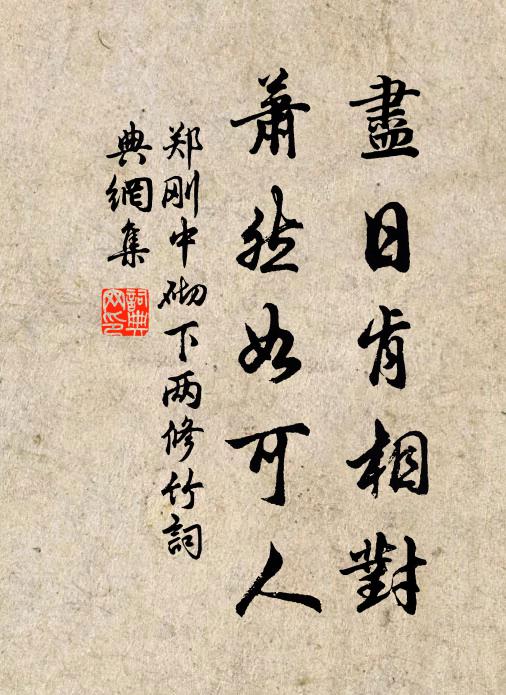 盡日肯相對
蕭然如可人
郑刚中砌下两修竹詞
典網集
詞典网印